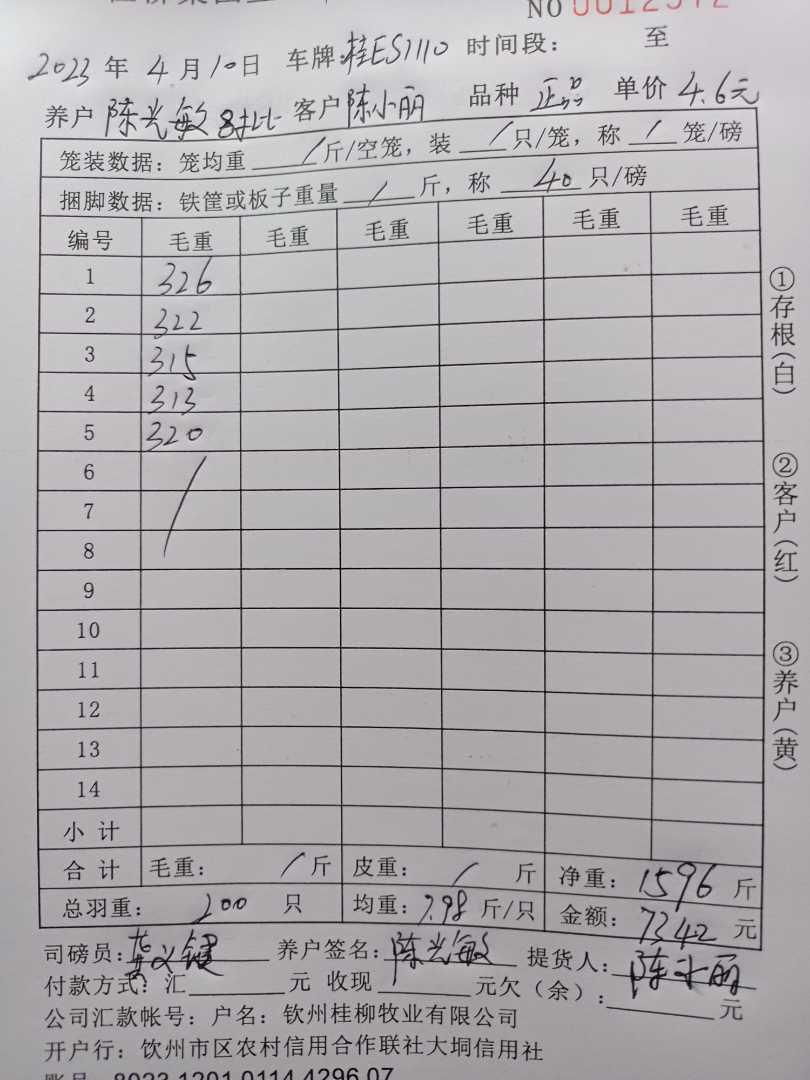 NO 0012572
2023 年 4 月 10 日 车牌:桂ES1110 时间段: 至
养户 陈光敏 8批 客户 陈小丽 品种 正品 单价 4.6元
笼装数据: 笼均重 / 斤/空笼, 装 / 只/笼, 称 / 笼/磅
捆脚数据: 铁筐或板子重量 / 斤, 称 40 只/磅
编号 毛重 毛重 毛重 毛重 毛重 毛重
1 326
2 322
3 315
4 313
5 320
6
7 /
8
9
10
11
12
13
14
小 计
合 计 毛重: / 斤 皮重: / 斤 净重: 1596 斤
总羽重: 200 只 均重: 7.98 斤/只 金额: 7342 元
司磅员: 龚义键 养户签名: 陈光敏 提货人: 陈小丽
付款方式: 汇 元 收现 元欠(余): 元
公司汇款帐号: 户名: 钦州桂柳牧业有限公司
开户行: 钦州市区农村信用合作联社大垌信用社
账号 8023 1201 0114 4296 07
①存根(白)
②客户(红)
③养户(黄)